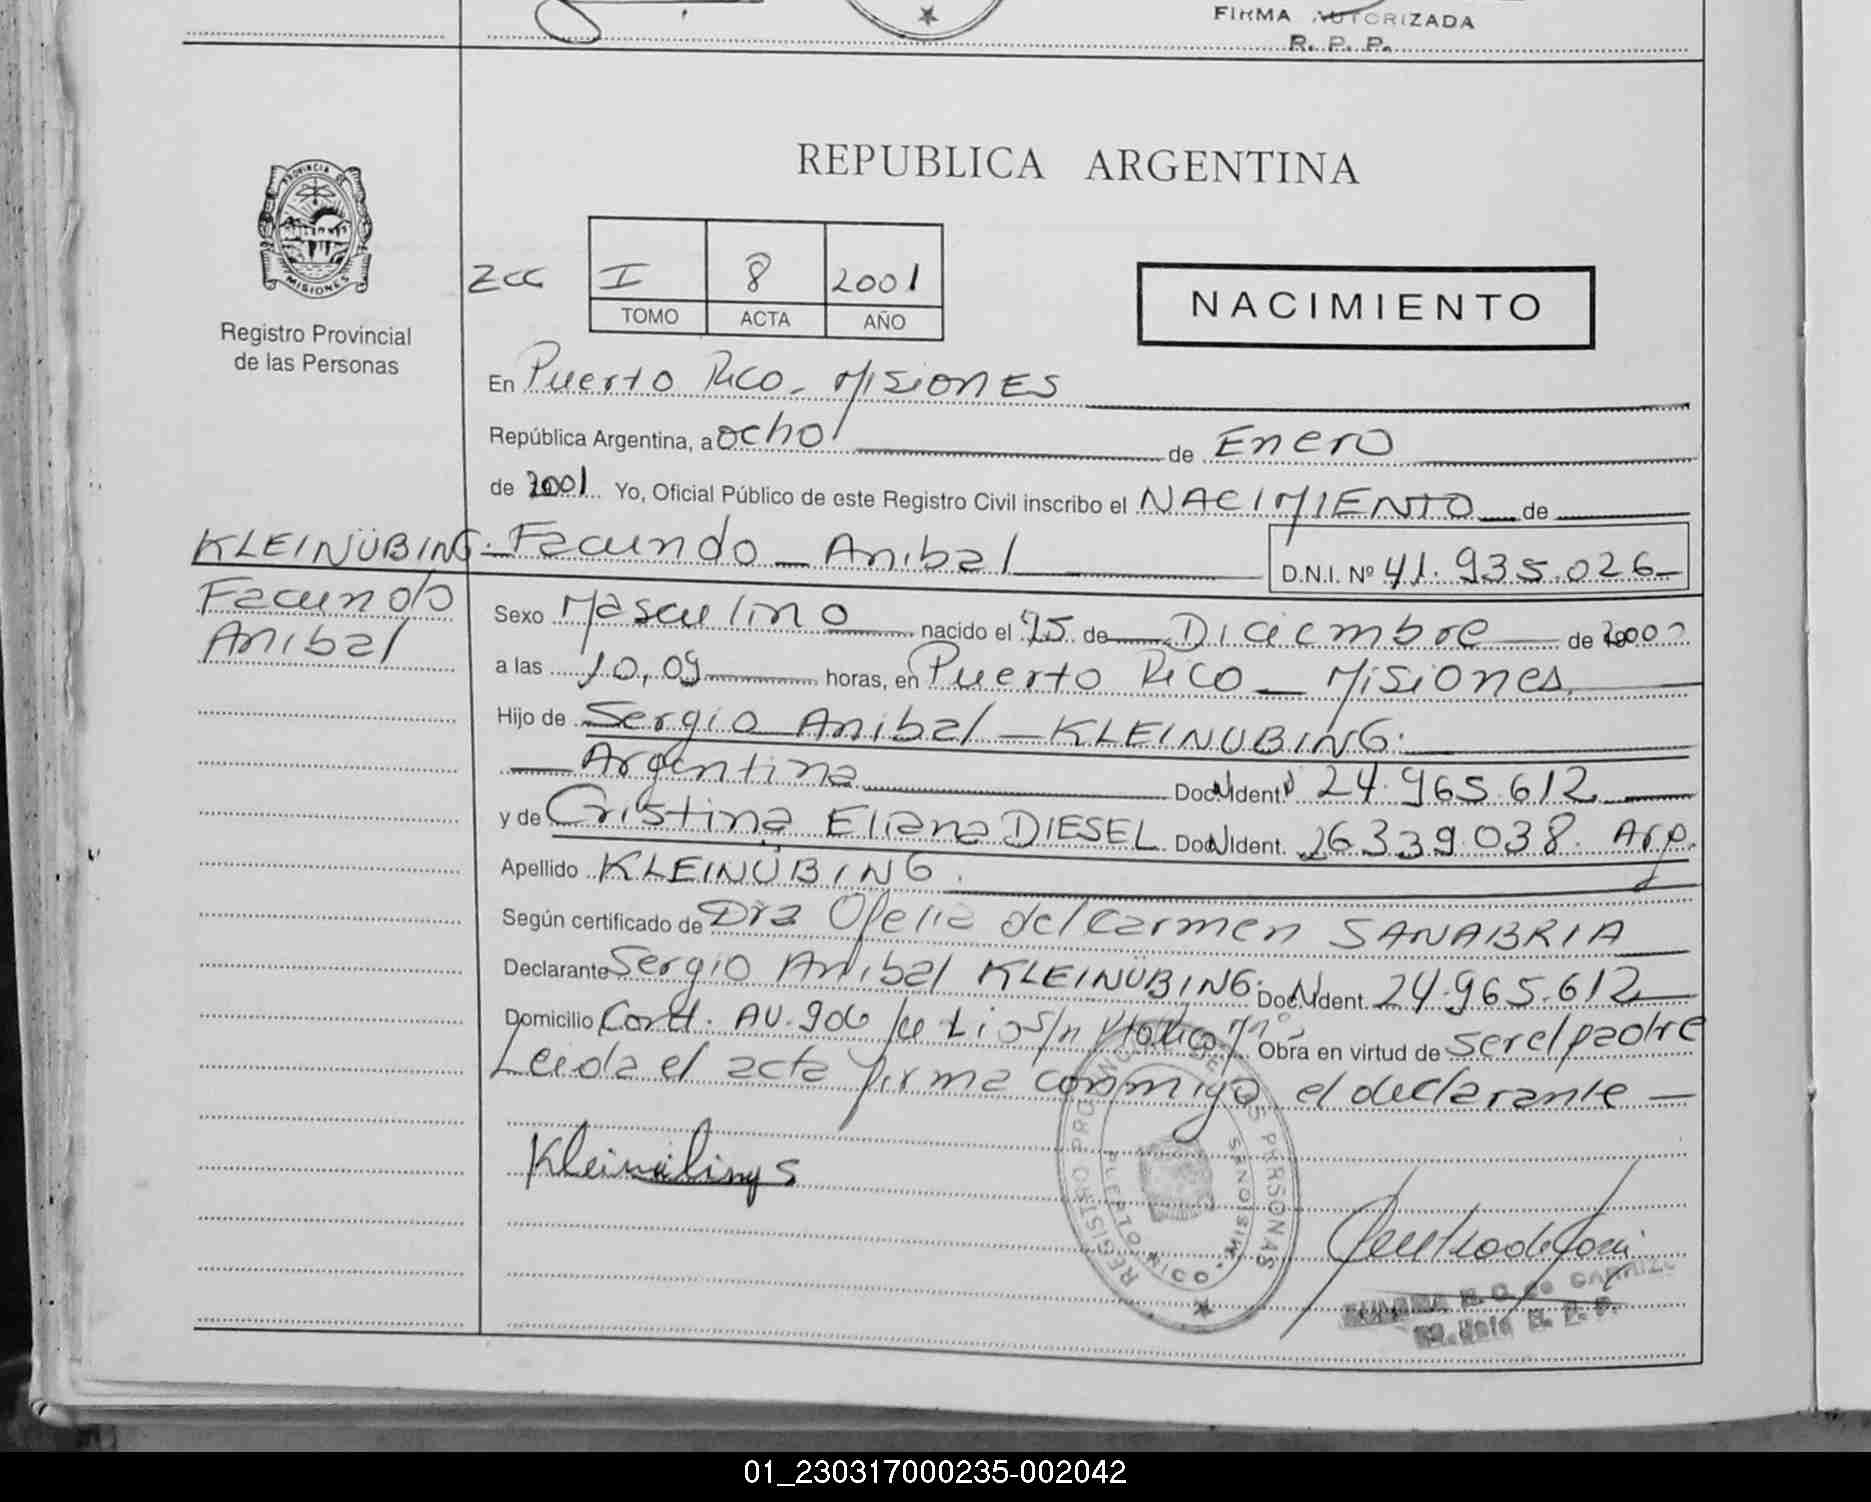 FIRMA AUTORIZADA
R. P. P.
PROVINCIA DE
MISIONES
Registro Provincial
de las Personas
REPUBLICA ARGENTINA
I 8 2001
TOMO ACTA AÑO
NACIMIENTO
En Puerto Rico - MISIONES
República Argentina, a ocho de Enero
de 2001 Yo, Oficial Público de este Registro Civil inscribo el NACIMIENTO de
KLEINÜBING Facundo Anibal D.N.I. Nº 41.935.026
Facundo
Anibal
Sexo Masculino nacido el 25 de Diciembre de 2000
a las 10,09 horas, en Puerto Rico - Misiones
Hijo de Sergio Anibal - KLEINUBING.
Argentina Doc. N Ident. 24.965.612
y de Cristina Eliana DIESEL Doc N Ident. 26.339.038. Arg.
Apellido KLEINÜBING.
Según certificado de Dra Ofelia del Carmen SANABRIA
Declarante Sergio Anibal KLEINÜBING. Doc. N Ident. 24.965.612
Domicilio AV. s/n Obra en virtud de ser el padre
Leida el acta firma conmigo el declarante
Kleinübing S
REGISTRO PROVINCIAL DE LAS PERSONAS
PUERTO RICO MISIONES
01_230317000235-002042